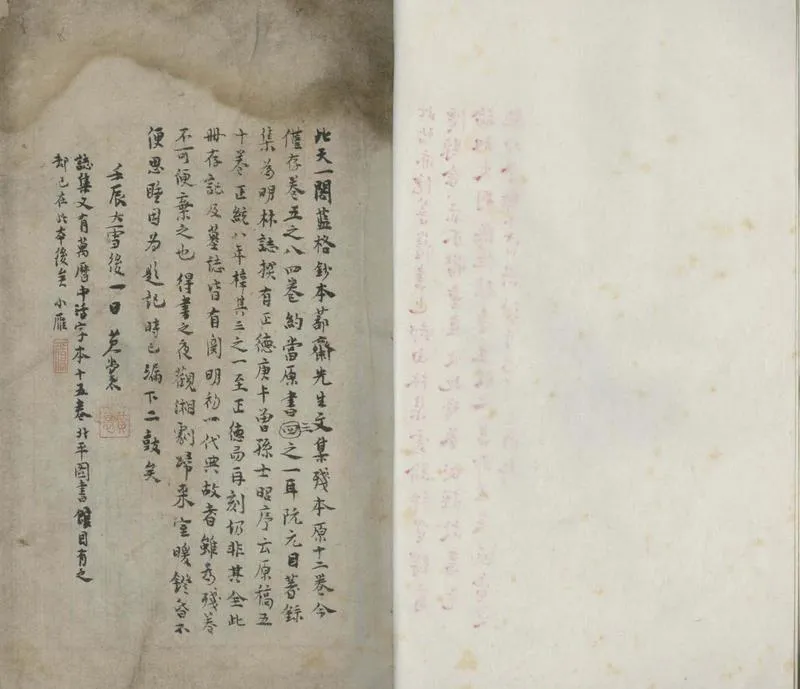 此天一閣藍格鈔本蔀齋先生文集殘本原十二卷今
僅存卷五之八四卷約當原書四三之一耳阮元目著錄
集為明林誌撰有正德庚午曾孫士昭序云原稿五
十卷正統八年梓其三之一至正德而再刻仍非其全此
冊存記及墓誌皆有關明初一代典故者雖為殘卷
不可便棄之也得書之夜觀湘劇歸來室暖鐙昏不
便思睡因為題記時已漏下二鼓矣
壬辰大雪後一日黃裳
誌集又有萬曆中活字本十五卷北平圖書館目有之
却已在此本後矣小雁